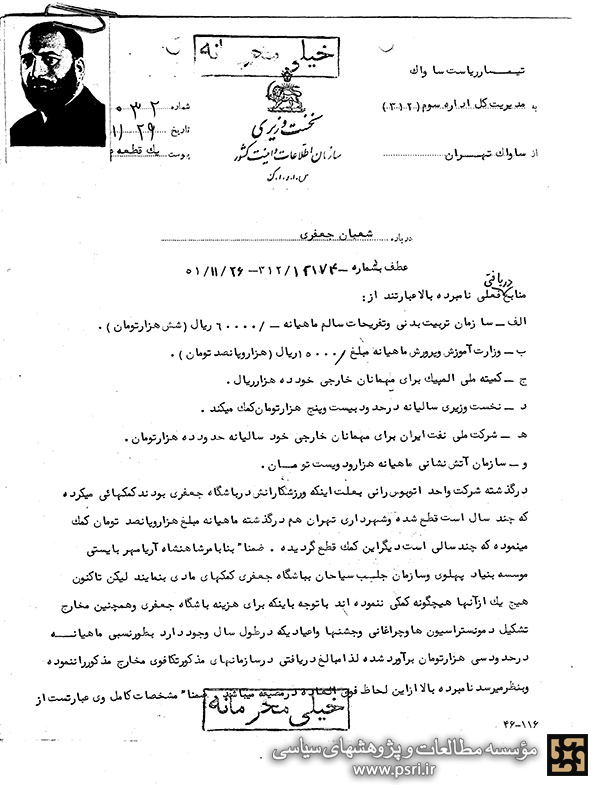 خیلی محرمانه
تیمسار ریاست ساواک
به مدیریت کل اداره سوم (۳۱۲)
از ساواک تهران
شماره
تاریخ ۱۱/۲۹
پیوست یک قطعه
نخست وزیری
سازمان اطلاعات و امنیت کشور
س.ا.و.ا.ک
درباره شعبان جعفری
عطف بشماره ۳۱۲/۱۲۱۷۴ – ۵۱/۱۱/۲۶
دریافتی
منابع فعلی نامبرده بالا عبارتند از :
الف ــ سازمان تربیت بدنی وتفریحات سالم ماهیانه ــ/۶۰۰۰۰ ریال (شش هزارتومان) .
ب ــ وزارت آموزش وپرورش ماهیانه مبلغ /۱۵۰۰۰ ریال (هزاروپانصد تومان) .
ج ــ کمیته ملی المپیک برای مهمانان خارجی خود ده هزارریال.
د ــ نخست وزیری سالیانه درحدود بیست وپنج هزارتومان کمک میکند .
هـ ــ شرکت ملی نفت ایران برای مهمانان خارجی خود سالیانه حدود ده هزارتومان.
و ــ سازمان آتش نشانی ماهیانه هزارودویست تومان .
درگذشته شرکت واحد اتوبوس رانی بعلت اینکه ورزشکارانش درباشگاه جعفری بودند کمکهائی میکرده
که چند سال است قطع شده وشهرداری تهران هم درگذشته ماهیانه مبلغ هزاروپانصد تومان کمک
مینموده که چند سالی است دیگر این کمک قطع گردیده . ضمنا" بنابامر شاهنشاه آریامهر بایستی
موسسه بنیاد پهلوی وسازمان جلب سیاحان بباشگاه جعفری کمکهای مادی بنمایند لیکن تاکنون
هیچ یک ازآنها هیچگونه کمکی ننموده اند باتوجه باینکه برای هزینه باشگاه جعفری وهمچنین مخارج
تشکیل دمونستراسیون ها وچراغانی وجشنها واعیادیکه درطول سال وجود دارد بطورنسبی ماهیانه
درحدود سی هزارتومان برآورد شده لذا مبالغ دریافتی درسازمانهای مذکور تکافوی مخارج مذکور را ننموده
وبنظر میرسد نامبرده بالا ازاین لحاظ فوق العاده درمضیقه میباشد . ضمنا" مشخصات کامل وی عبارتست از
خیلی محرمانه
۴۶-۱۱۶
مؤسسه مطالعات و پژوهشهای سیاسی
www.psri.ir